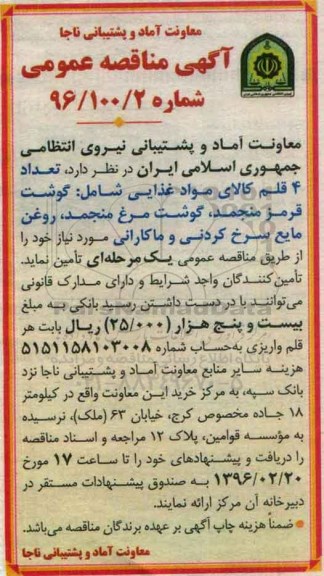 معاونت آماد و پشتیبانی ناجا
آگهی مناقصه عمومی
شماره ۹۶/۱۰۰/۲
معاونت آماد و پشتیبانی نیروی انتظامی
جمهوری اسلامی ایران در نظر دارد، تعداد
۴ قلم کالای مواد غذایی شامل: گوشت
قرمز منجمد، گوشت مرغ منجمد، روغن
مایع سرخ کردنی و ماکارانی مورد نیاز خود را
از طریق مناقصه عمومی یک مرحله‌ای تأمین نماید.
تأمین‌کنندگان واجد شرایط و دارای مدارک قانونی
می‌توانند با در دست داشتن رسید بانکی به مبلغ
بیست و پنج هزار (۲۵/۰۰۰) ریال بابت هر
قلم واریزی به‌حساب شماره ۵۱۵۱۱۵۸۱۰۳۰۰۸
هزینه سایر منابع معاونت آماد و پشتیبانی ناجا نزد
بانک سپه، به مرکز خرید این معاونت واقع در کیلومتر
۱۸ جاده مخصوص کرج، خیابان ۶۳ (ملک)، نرسیده
به مؤسسه قوامین، پلاک ۱۲ مراجعه و اسناد مناقصه
را دریافت و پیشنهادهای خود را تا ساعت ۱۷ مورخ
۱۳۹۶/۰۲/۲۰ به صندوق پیشنهادات مستقر در
دبیرخانه آن مرکز ارائه نمایند.
• ضمناً هزینه چاپ آگهی بر عهده برندگان مناقصه می‌باشد.
معاونت آماد و پشتیبانی ناجا